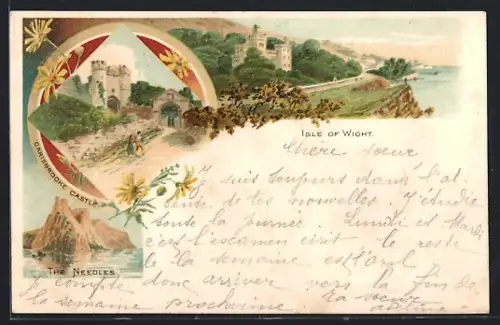 ISLE OF WIGHT.
CARISBROOKE CASTLE
THE NEEDLES
Chère soeur
Je suis toujours dans l'at
tente de tes nouvelles. J'étudie
toute la journée. Lundi et Mardi
c'est l'escamen écrit le reste
de la semaine est l'oral
Je compte donc arriver vers la fin de
la semaine prochaine. Ta soeur